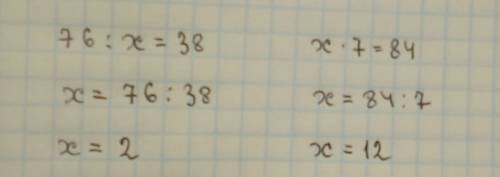 76 : x = 38
x = 76 : 38
x = 2
x · 7 = 84
x = 84 : 7
x = 12